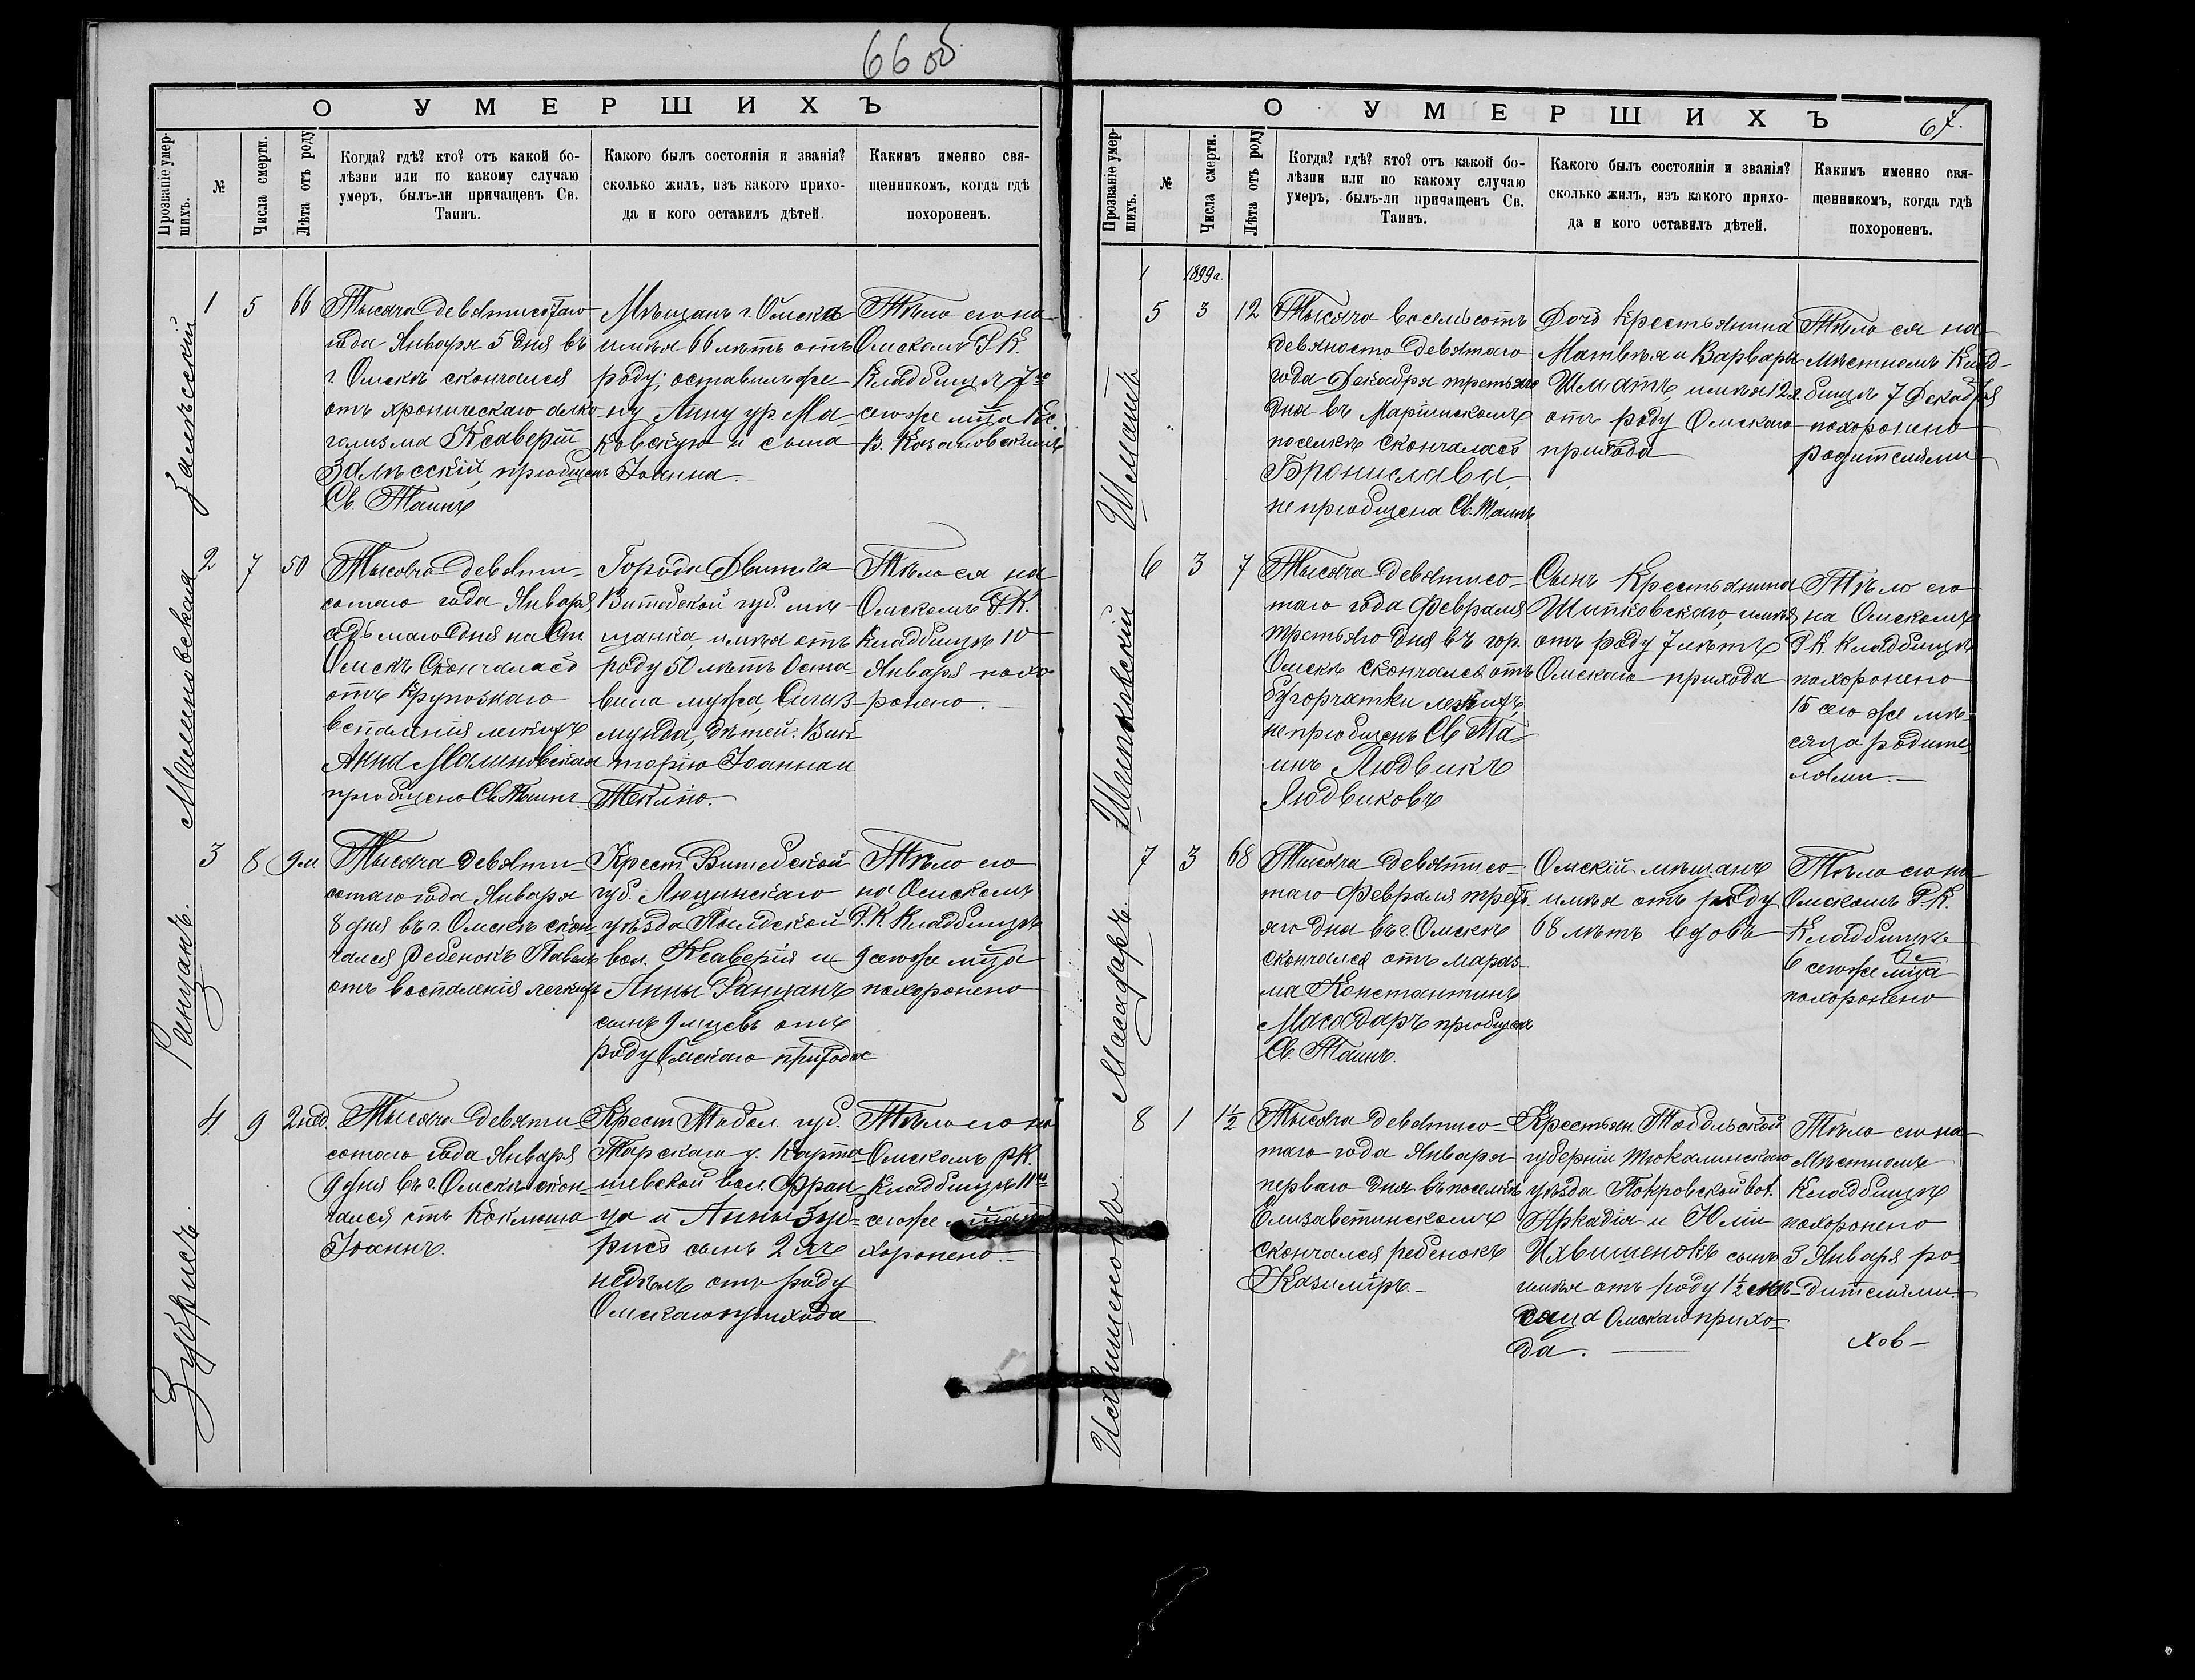 66 об
О УМЕРШИХЪ
Прозваніе умер-
шихъ.
№
Числа смерти.
Лѣта отъ роду
Когда? гдѣ? кто? отъ какой бо-
лѣзни или по какому случаю
умеръ, былъ-ли причащенъ Св.
Таинъ.
Какого былъ состоянія и званія?
сколько жилъ, изъ какого прихо-
да и кого оставилъ дѣтей.
Какимъ именно свя-
щенникомъ, когда гдѣ
похороненъ.
Залѣсскій
1
5
66
Тысяча девятисотаго
года Января 5 дня въ
г. Омскѣ скончался
отъ хроническаго алко-
голизма Ксаверій
Залѣсскій, пріобщенъ
Св. Таинъ
Мѣщанъ г. Омска
имѣя 66 лѣтъ отъ
роду; оставилъ же-
ну Анну ур Ма-
ковскую и сына
Іоанна.
Тѣло его на
Омскомъ Р. К.
Кладбищѣ 7го
сего же мца Кс.
В. Козаковскимъ
Малиновская
2
7
50
Тысяча девяти-
сотаго года Января
седьмаго дня на Ст
Омскъ скончалась
отъ крупознаго
воспаленія легкихъ
Анна Малиновская
пріобщено Св. Таинъ
Города Двинска
Витебской губ. мѣ-
щанка, имѣя отъ
роду 50 лѣтъ Оста-
вила мужа, Сигиз-
мунда, дѣтей: Вик-
торію Іоанна и
Теклію.
Тѣло ея на
Омскомъ Р. К.
Кладбищѣ 10
Января похо-
ронено.
Ранцанъ.
3
8
9 м
Тысяча девяти-
сотаго года Января
8 дня въ г. Омскѣ скон-
чался ребенокъ Павелъ
отъ воспаленія легкихъ
Крест. Витебской
губ. Люцинскаго
уѣзда Пылдской
вол. Ксаверія и
Анны Ранцанъ
сынъ 9 мцевъ отъ
роду Омскаго прихода
Тѣло его
на Омскомъ
Р. К. Кладбищѣ
9 сего же мца
похоронено
Зубрисъ.
4
9
2 нед.
Тысяча девяти-
сотаго года Января
9 дня въ г. Омскѣ скон-
чался отъ Коклюша
Іоаннъ.
Крест Тобол. губ.
Тарскаго у. Карта-
шевской вол. Фран-
ца и Анны Зуб-
рисъ сынъ 2 хъ
недѣль отъ роду
Омскаго прихода
Тѣло его на
Омскомъ Р. К.
Кладбищѣ 11го
сего же мца по-
хоронено.
О УМЕРШИХЪ
67.
Прозваніе умер-
шихъ.
№
Числа смерти.
Лѣта отъ роду
Когда? гдѣ? кто? отъ какой бо-
лѣзни или по какому случаю
умеръ, былъ-ли причащенъ Св.
Таинъ.
Какого былъ состоянія и званія?
сколько жилъ, изъ какого прихо-
да и кого оставилъ дѣтей.
Какимъ именно свя-
щенникомъ, когда гдѣ
похороненъ.
1
1899 г.
Шматъ
5
3
12
Тысяча восемьсотъ
девяносто девятаго
года Декабря третьяго
дня въ Маріинскомъ
поселкѣ скончалась
Бронислава,
не пріобщена Св. Таинъ
Дочь крестьянина
Матвѣя и Варвары
Шматъ, имѣя 12 л.
отъ роду Омскаго
прихода
Тѣло ея на
мѣстномъ Клад-
бищѣ 7 Декабря
похоронено
родителями
Шипковскій
6
3
7
Тысяча девятисо-
таго года Февраля
третьяго дня въ гор.
Омскѣ скончался отъ
бугорчатки легкихъ,
не пріобщенъ Св. Та-
инъ Людвикъ
Людвиковъ
Сынъ Крестьянина
Шипковскаго, имѣя
отъ роду 7 лѣтъ
Омскаго прихода
Тѣло его
на Омскомъ
Р. К. Кладбищѣ
похоронено
15 сего же мѣ-
сяца родите-
лями.
Масадаръ.
7
3
68
Тысяча девятисо-
таго Февраля треть-
яго дня въ г. Омскѣ
скончался отъ мараз-
ма Константинъ
Масадаръ пріобщенъ
Св. Таинъ.
Омскій мѣщанъ
имѣя отъ роду
68 лѣтъ вдовъ
Тѣло его на
Омскомъ Р. К.
Кладбищѣ
6 сего же мца
похоронено
Исхвишенокъ.
8
1
1½
Тысяча девятисо-
таго года Января
перваго дня въ поселкѣ
Елизаветинскомъ
скончался ребенокъ
Казиміръ.
Крестьян. Тобольской
губерніи Тюкалинскаго
уѣзда Покровской вол.
Аркадія и Юліи
Ихвишенокъ сынъ
имѣя отъ роду 1½ мѣ-
сяца Омскаго прихо-
да.
Тѣло его на
Мѣстномъ
Кладбищѣ
похоронено
3 Января ро-
дителями.